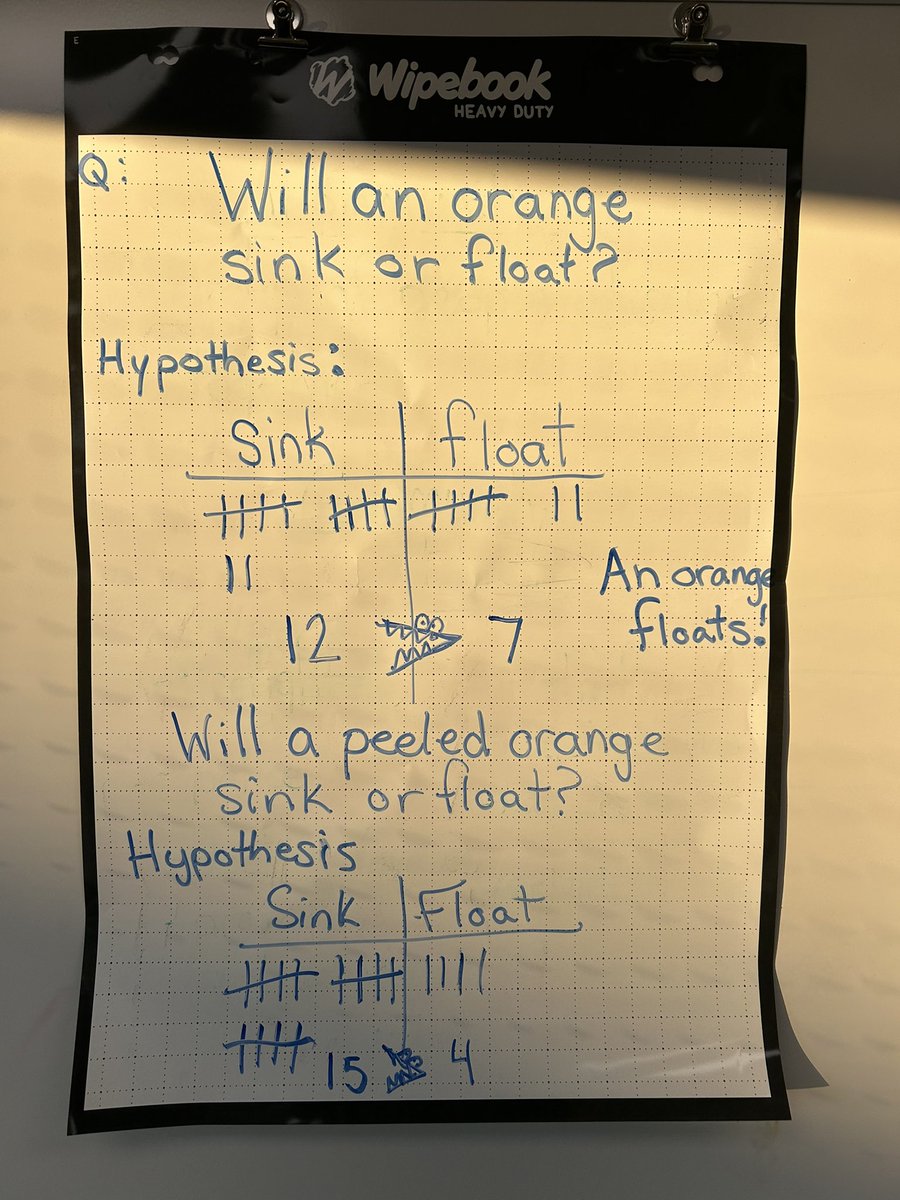 E
Wipebook
HEAVY DUTY
Q: Will an orange
sink or float?
Hypothesis:
Sink float
12 > 7
An orange
floats!
Will a peeled orange
sink or float?
Hypothesis
Sink Float
15 > 4